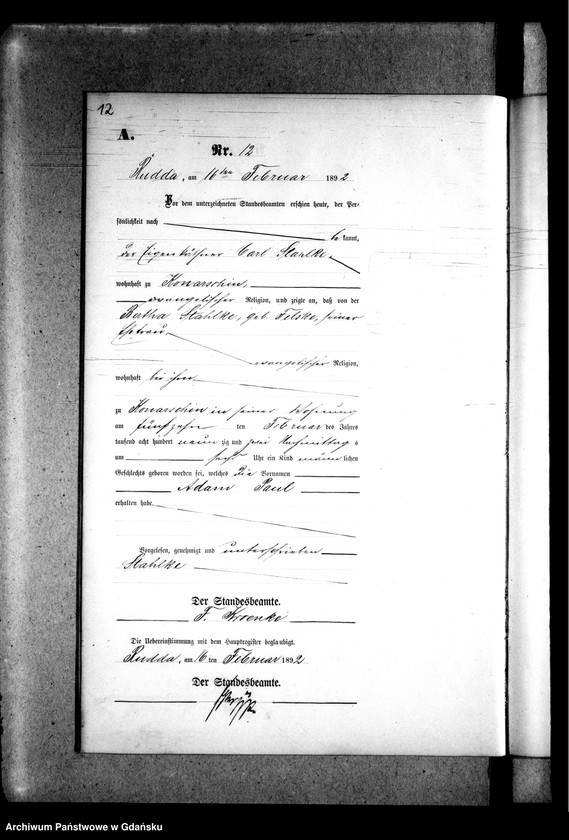 12
A.
Nr. 12
Rudda, am 16ten Februar 1892
Vor dem unterzeichneten Standesbeamten erschien heute, der Per-
sönlichkeit nach
be kannt,
der Eigenkäthner Carl Stahlke,
wohnhaft zu Konarschin,
evangelischer Religion, und zeigte an, daß von der
Bertha Stahlke, geb. Felske, seiner
Ehefrau,
evangelischer Religion,
wohnhaft bei ihm
zu Konarschin in seiner Wohnung
am fünfzehn ten Februar des Jahres
tausend acht hundert neun zig und zwei Nachmittag s
um sechs Uhr ein Kind männ lichen
Geschlechts geboren worden sei, welches die Vornamen
Adam Paul
erhalten habe
Vorgelesen, genehmigt und unterschrieben
Stahlke
Der Standesbeamte.
F. Kroenke
Die Uebereinstimmung mit dem Hauptregister beglaubigt.
Rudda, am 16 ten Februar 1892
Der Standesbeamte.
Archiwum Państwowe w Gdańsku